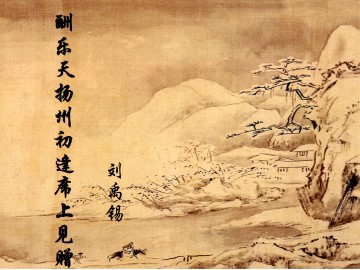 酬乐天扬州初逢席上见赠
刘禹锡